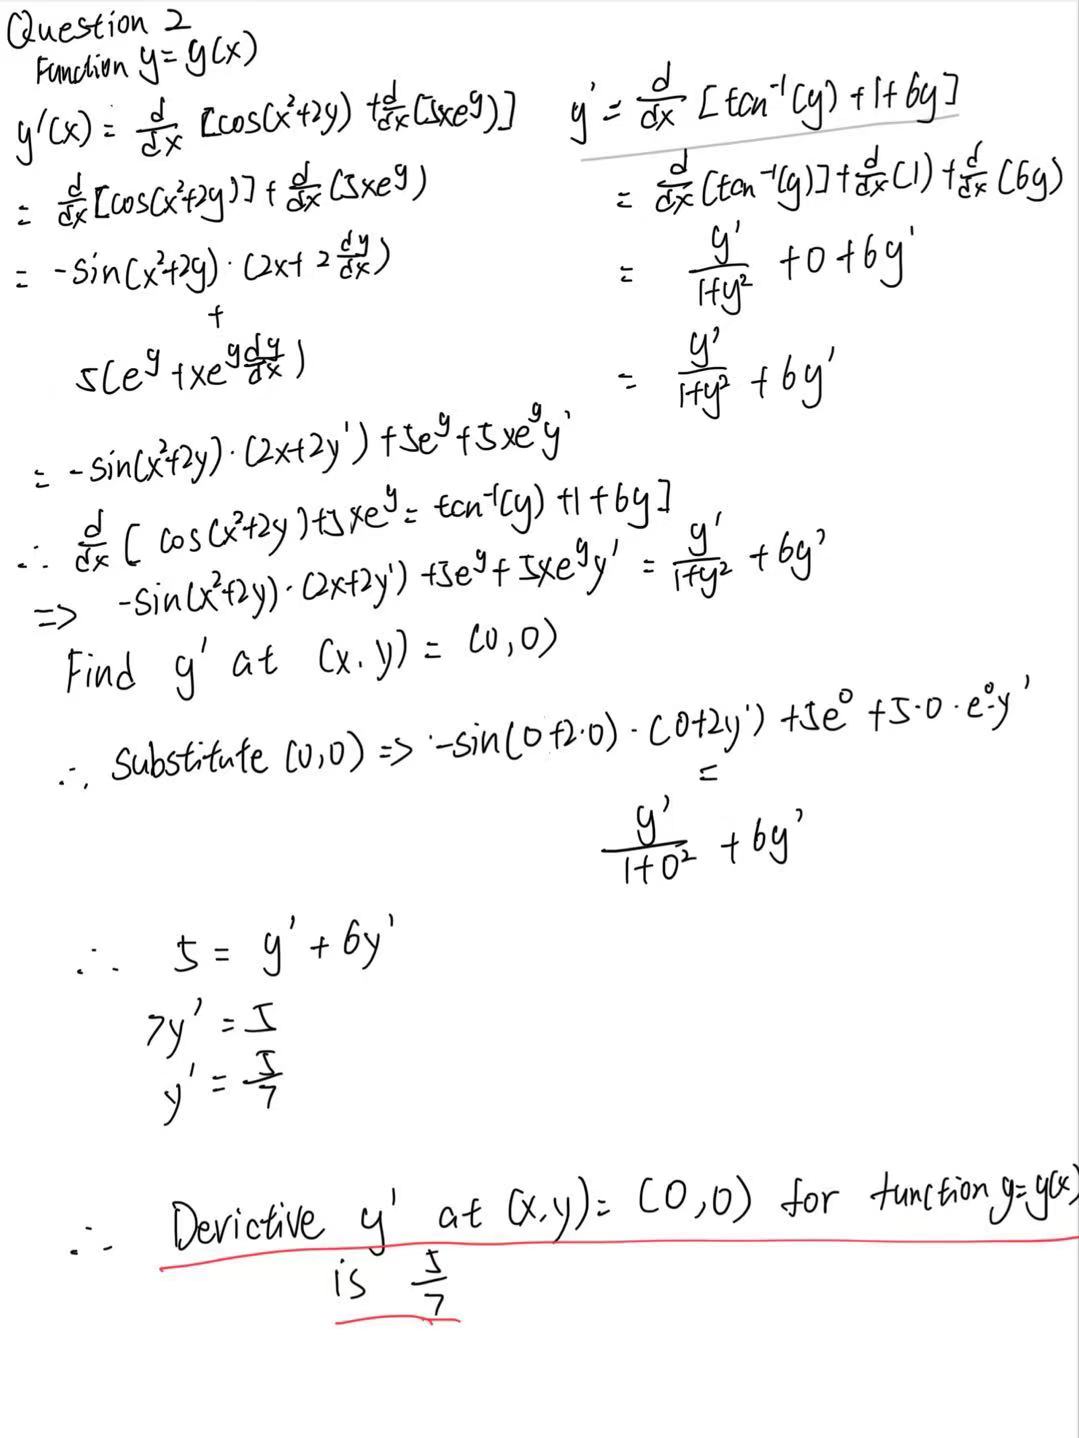 Question 2
Function y = y(x)
y'(x) = d/dx [cos(x²+2y) + d/dx (5xe^y)]
= d/dx [cos(x²+2y)] + d/dx (5xe^y)
= -sin(x²+2y) · (2x + 2 dy/dx)
+
5(e^y + xe^y dy/dx)
= -sin(x²+2y) · (2x+2y') + 5e^y + 5xe^y y'
y' = d/dx [tan⁻¹(y) + 1 + 6y]
= d/dx [tan⁻¹(y)] + d/dx (1) + d/dx (6y)
= y'/(1+y²) + 0 + 6y'
= y'/(1+y²) + 6y'
∴ d/dx [cos(x²+2y) + 5xe^y = tan⁻¹(y) + 1 + 6y]
=> -sin(x²+2y) · (2x+2y') + 5e^y + 5xe^y y' = y'/(1+y²) + 6y'
Find y' at (x, y) = (0,0)
∴ Substitute (0,0) => -sin(0+2·0) · (0+2y') + 5e⁰ + 5·0·e⁰·y'
=
y'/(1+0²) + 6y'
∴ 5 = y' + 6y'
7y' = 5
y' = 5/7
∴ Derictive y' at (x,y) = (0,0) for function y=y(x)
is 5/7